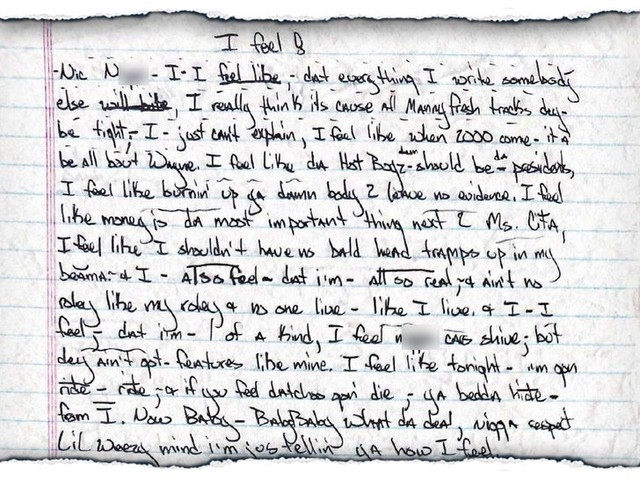 I feel 8
-Nic N - I-I feel like,- dat everything I write somebody
else will bite, I really think its cause all Mannyfresh tracks dey-
be tight,- I - just can't explain, I feel like when 2000 come - it'a
be all bout Wayne. I feel like da Hot Boyz dem - should be - da presidents,
I feel like burnin' up ya damn body 2 leave no evidence. I feel
like money is da most important thing next 2 Ms. Cita,
I feel like I shouldn't have no bald head tramps up in my
beama-& I - Also feel - dat i'm - All so real,-& ain't no
roley like my roley & no one live - like I live. & I-I
feel,- dat i'm - 1 of a kind, I feel n cas shive,- but
dey ain't got - features like mine. I feel like tonight - i'm gon
ride - ride,-& if you feel datchoo gon' die,- ya bedda hide -
from I. Now Baby - BabyBaby What da deal, nigga respect
Lil Weezy mind i'm jus tellin' ya how I feel.